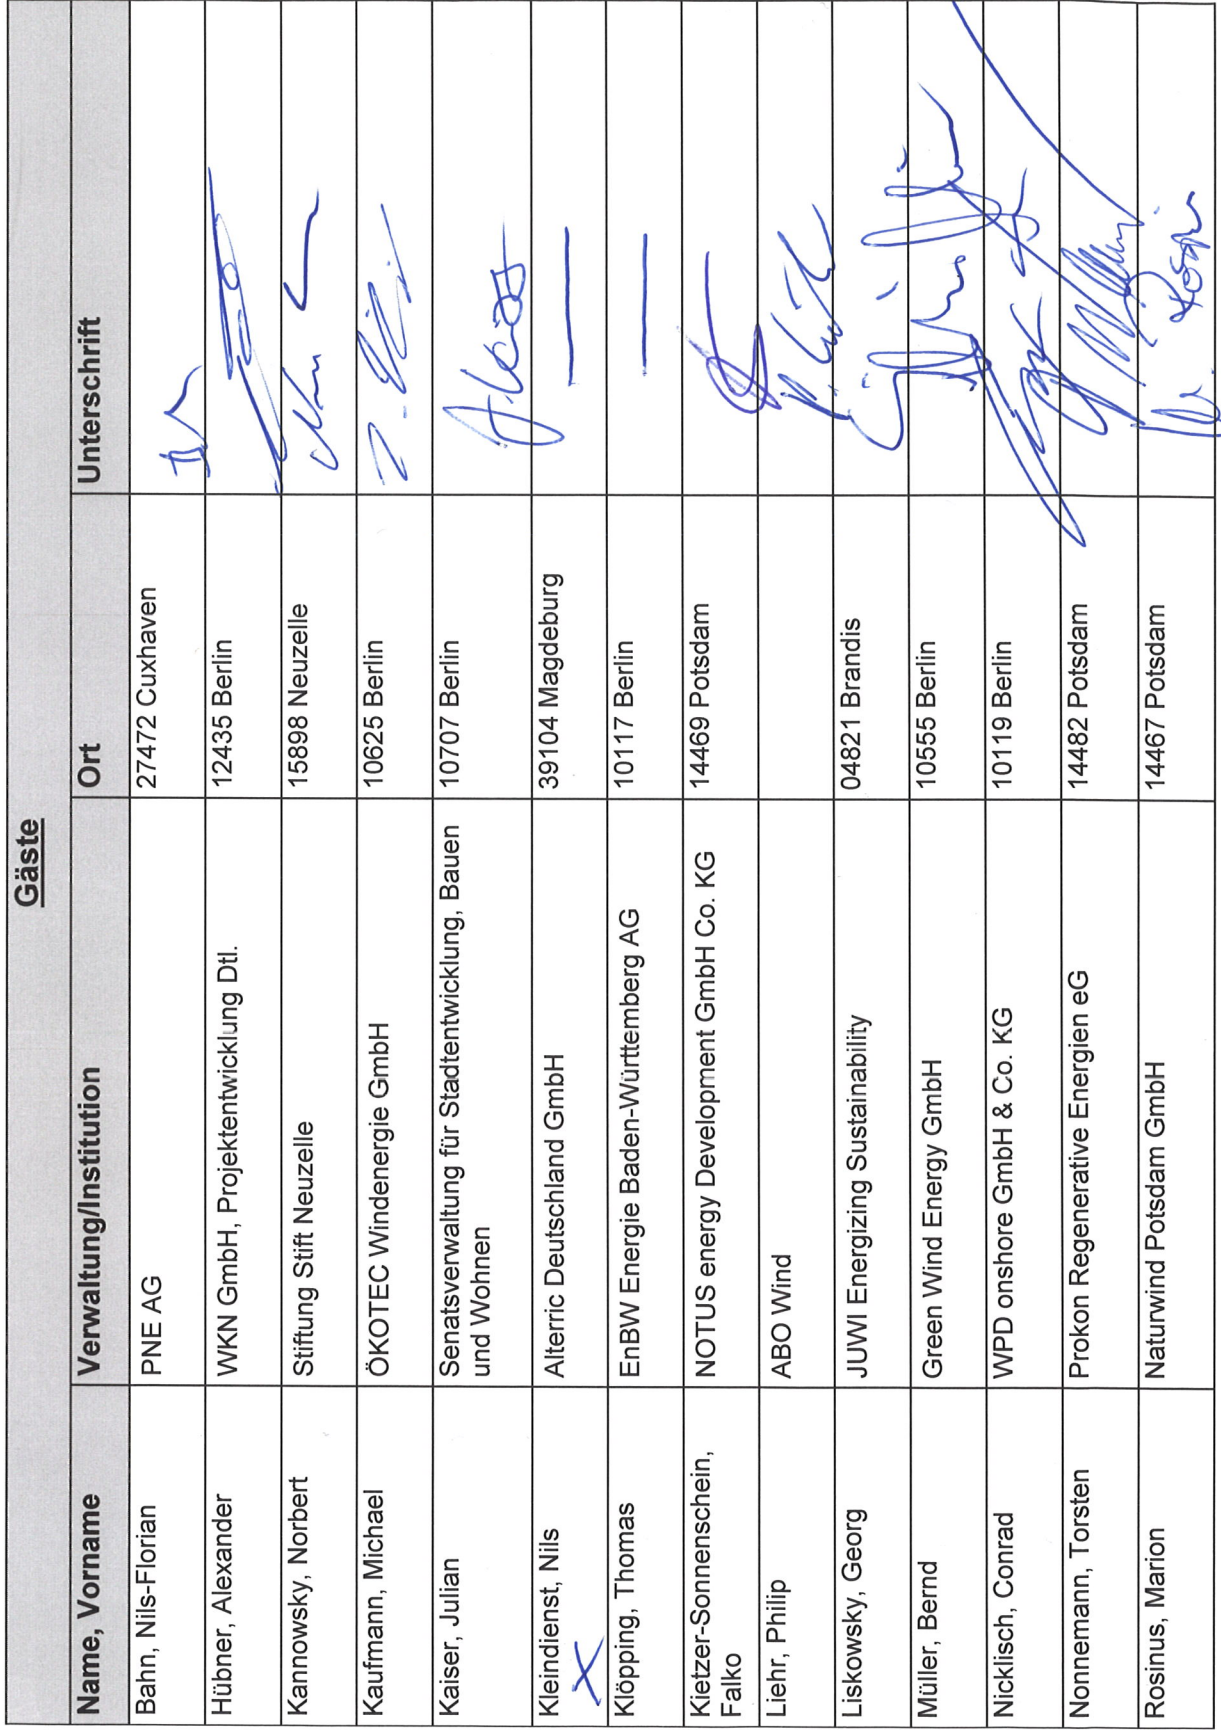 Gäste
Name, Vorname Verwaltung/Institution Ort Unterschrift
Bahn, Nils-Florian PNE AG 27472 Cuxhaven
Hübner, Alexander WKN GmbH, Projektentwicklung Dtl. 12435 Berlin
Kannowsky, Norbert Stiftung Stift Neuzelle 15898 Neuzelle
Kaufmann, Michael ÖKOTEC Windenergie GmbH 10625 Berlin
Kaiser, Julian Senatsverwaltung für Stadtentwicklung, Bauen 10707 Berlin
und Wohnen
Kleindienst, Nils Alterric Deutschland GmbH 39104 Magdeburg
Klöpping, Thomas EnBW Energie Baden-Württemberg AG 10117 Berlin
Kietzer-Sonnenschein, NOTUS energy Development GmbH Co. KG 14469 Potsdam
Falko
Liehr, Philip ABO Wind
Liskowsky, Georg JUWI Energizing Sustainability 04821 Brandis
Müller, Bernd Green Wind Energy GmbH 10555 Berlin
Nicklisch, Conrad WPD onshore GmbH & Co. KG 10119 Berlin
Nonnemann, Torsten Prokon Regenerative Energien eG 14482 Potsdam
Rosinus, Marion Naturwind Potsdam GmbH 14467 Potsdam